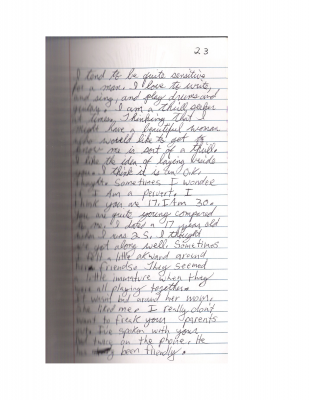 23
I tend to be quite sensitive
for a man. I love to write,
and sing, and play drums and
guitar. I am a thrill seeker
at times, Thinking that I
might have a beautiful woman
who would like to get to
know me is sort of a thrill.
I like the idea of laying beside
you. I think it is
Sometimes I wonder
if I am a pervert. I
think you are 17. I Am 30.
You are quite young compared
to me. I dated a 17 year old
when I was 25. I thought
we got along well. Sometimes
I felt a little akward around
her friends. They seemed
a little immature when they
were all playing together.
It wasnt bad around her mom.
She liked me. I really don't
want to freak your parents
out. I've spoken with your
dad twice on the phone. He
has been friendly.